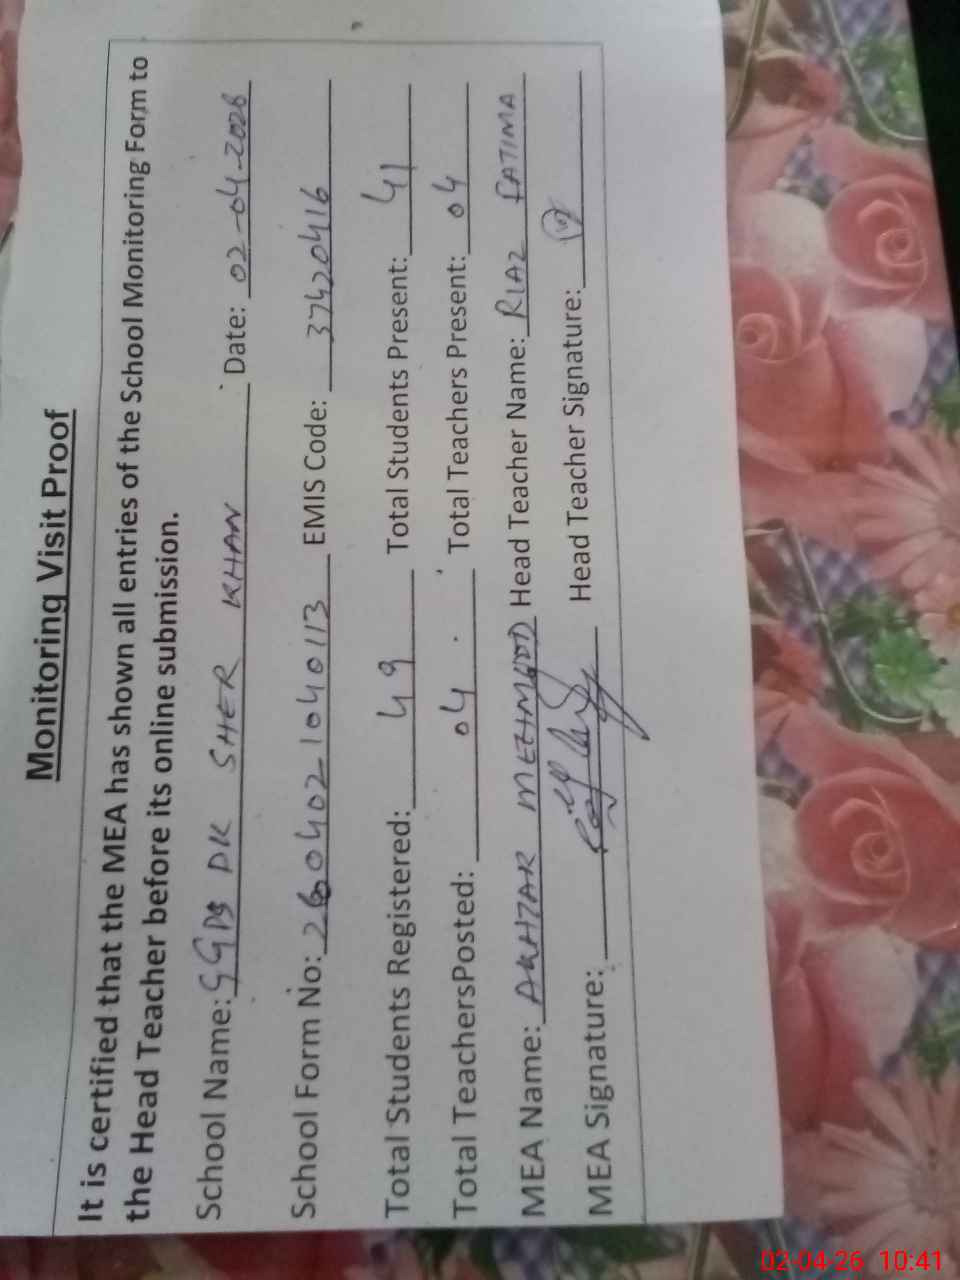 Monitoring Visit Proof
It is certified that the MEA has shown all entries of the School Monitoring Form to
the Head Teacher before its online submission.
School Name: GGPS DK SHER KHAN Date: 02-04-2026
School Form No: 2604021040113 EMIS Code: 37420416
Total Students Registered: 49 Total Students Present: 41
Total TeachersPosted: 04 Total Teachers Present: 04
MEA Name: AKHTAR MEHMOOD Head Teacher Name: RIAZ FATIMA
MEA Signature: Head Teacher Signature:
02-04-26 10:41